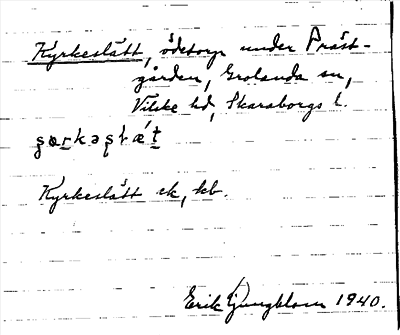 Kyrkeslätt, ödetorp under Präst-
gården, Grolanda sn,
Vilske hd, Skaraborgs l.
Kyrkeslätt ek, kb.
Erik Ljungblom 1940.